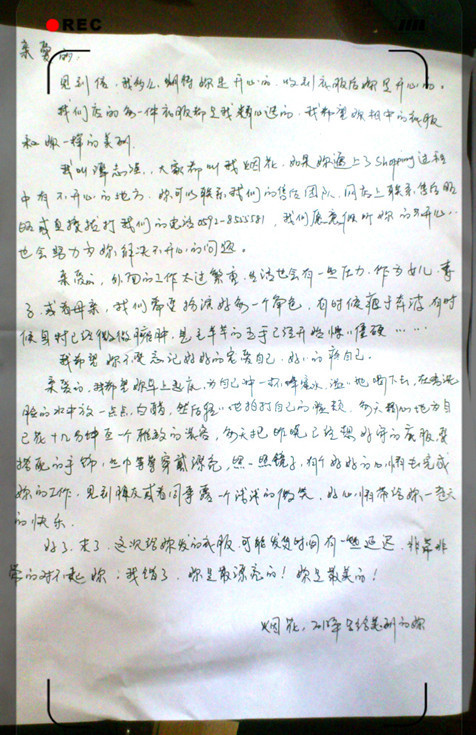 REC
亲爱的,
见到信,我多么期待你是开心的,收到衣服后你是开心的。
我们店的每一件衣服都是我精心选的,我希望你相中的衣服
和你一样的美丽.
我叫,大家都叫我烟花,如果你遇上了Shopping过程
中有不开心的地方,你可以联系我们的售后团队,网店上联系售后
或直接拨打我们的电话0592-8555581,我们愿意倾听你的不开心,
也会努力为你解决不开心的问题。
亲爱的,外面的工作太过繁重,生活也会有一些压力,作为女儿,妻
子,或者母亲,我们需要扮演好每一个角色,有时候疲于奔波,有时
候身材已经微微臃肿,是毛茸茸的手已经开始僵硬……
我希望你不要忘记好好的宠爱自己,好好的疼自己.
亲爱的,我希望你早上起床,为自己冲一杯蜂蜜水,温温地喝下去,在洗
脸的水中放一点点白醋,然后轻地拍打自己的脸颊,每天为自
己花十几分钟化一个雅致的淡容,每天把昨晚已经想好的衣服,要
搭配的手饰,丝巾穿戴漂亮,照一照镜子,有个好好的心情去完成
你的工作,见到朋友或者同事露一个浅浅的微笑,好心情带给你一整天
的快乐.
好了,亲,这次给你发的衣服,可能发货时间有一些延迟,非常非
常的对不起你:我错了,你是最漂亮的!你是最美的!
烟花,2012年写给美丽的你